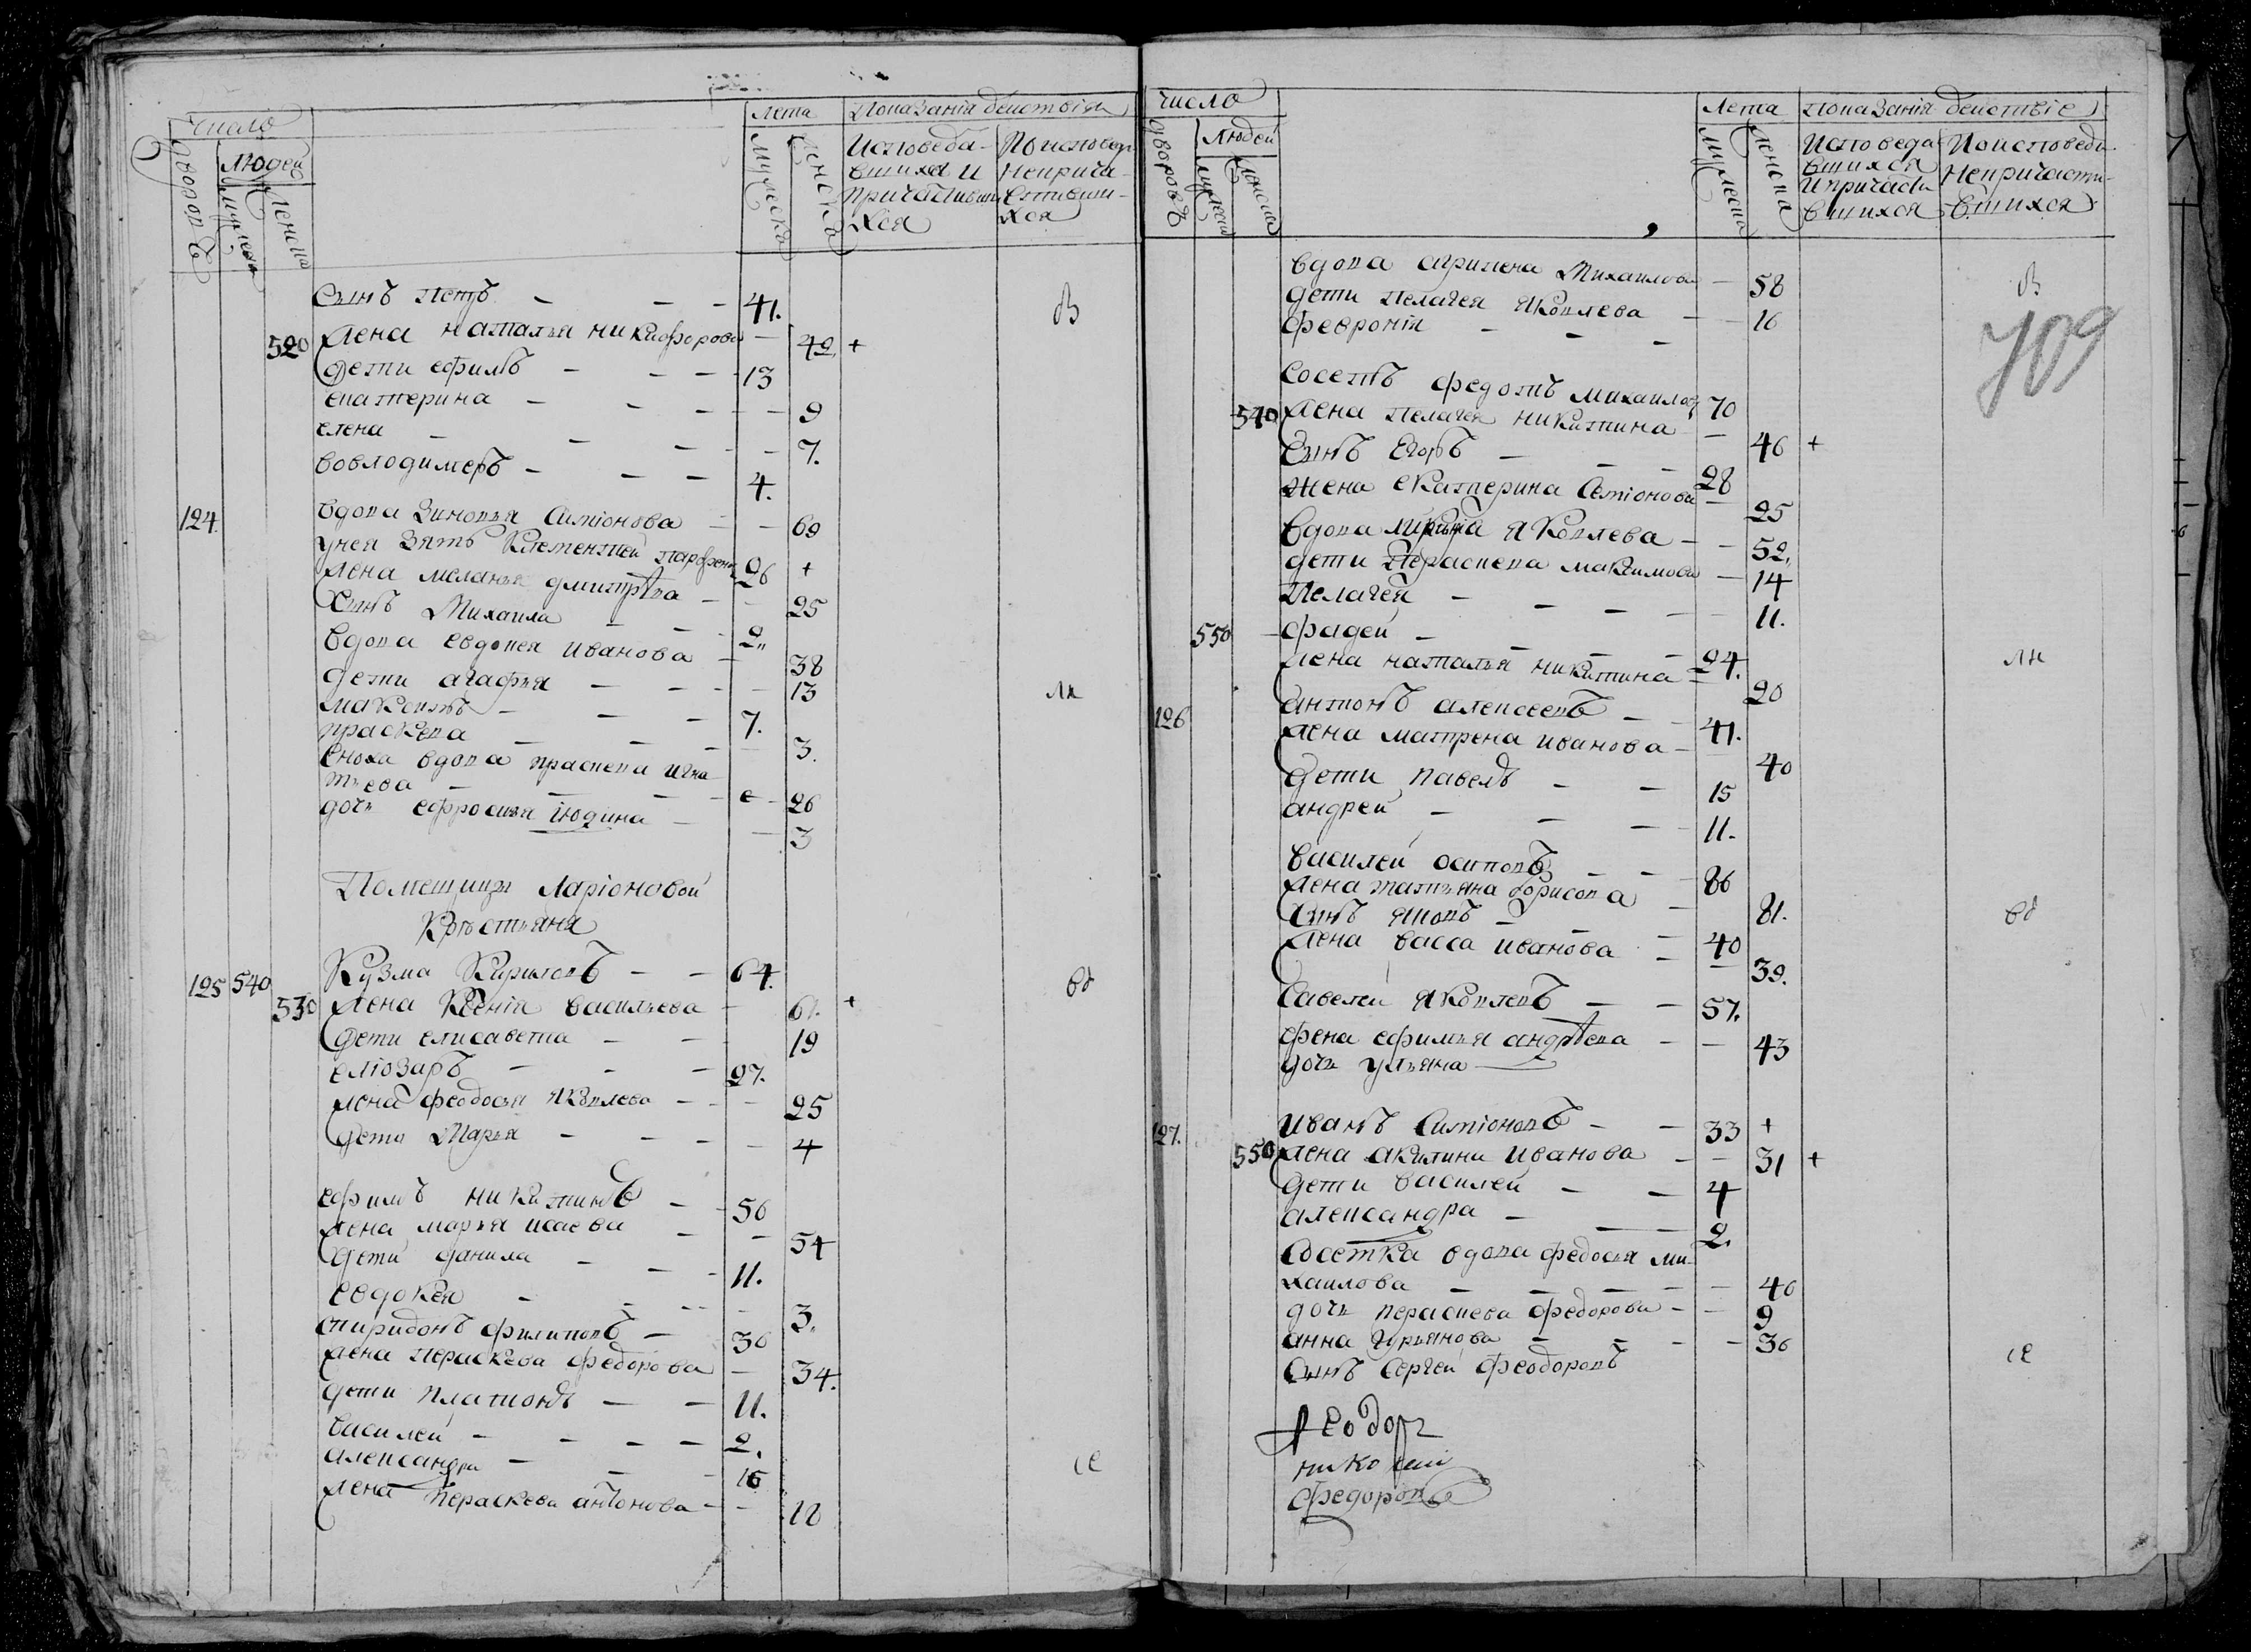 Число
Дворовъ
Людей
Мужеска
Женска
Лета
Мужеска
Женска
Показанiи действiи
Исповеда-
вшихся и
причастивши
хся
По исповед
Неприча-
стивши-
хся
Сынъ Петръ - - - 41.
520 Жена наталья никифорова - 42. +
Дети ефимъ - - - 13
екатерина - - - 9
елена - - - 7.
вовлодимеръ - - - 4.
124. вдова Зиновья Симiонова - - 69
унея Зять Клементей парфенов 26 +
жена меланья дмитрѣва - - 25
Сынъ Михаила - - 2.
вдова евдокея иванова - 38
дети агафья - - - 13
максимъ - - - 7.
праскева - - - 3.
Сноха вдова праскева игна
тьева - - - 26
дочь ефросинья iюдина - - 3
Помещицы Ларiоновой
Крѣстьяня
125 540 Кузма Кириловъ - - 64.
530 жена Ксенiя васильева - 61. +
дети елисавета - - 19
елiозаръ - - - 27.
жена феодосья яковлева - - - 25
дети Марья - - - - 4
ефимъ никитинъ - - 56
жена марья исаева - - 54
дети данила - - - 11.
евдокея - - - - 3.
спиридонъ филиповъ - 36
жена пераскева федорова - 34.
дети платонъ - - 11.
василей - - - - 2.
александра - - - 16
жена пераскева антонова - - 18
Число
Дворовъ
Людей
Мужеска
Женска
Лета
Мужеска
Женска
Показанiи действiе
Исповеда
вшихся
и причасти
вшихся
По исповеди
Непричасти-
вшихся
709
вдова агрипена Михаилова - 58
дети пелагея яковлева - - 16
феврония - - -
Соседъ федотъ михаиловъ 70
540 жена пелагея никитина - 46 +
Сынъ Егоръ - - - 28
жена екатерина Семiонова - 25
вдова марина яковлева - - 52.
дети Пераскева максимова - 14
Пелагея - - - - - 11.
550 фадей - - - 24.
жена наталья никитина - 20
126 антонъ алексеевъ - - 41.
жена матрена иванова - 40
дети павелъ - - 15
андрей - - - 11.
василей осиповъ - - 86
жена татьяна борисова - 81.
Сынъ яковъ - - - 40
жена васса иванова - - 39.
Савелей яковлевъ - - 57.
жена ефимья андрѣева - - 43
дочь ульяна
127. иванъ Симiоновъ - - 33 +
550 жена акилина иванова - - 31 +
дети василей - - 4
александра - - - 2.
Соседка вдова федосья ми-
хаилова - - - - - 40
дочь пераскева федорова - - 9
анна гурьянова - - - - 36
Сынъ Сергей феодоровъ
Феодоръ
николай
Федоровъ